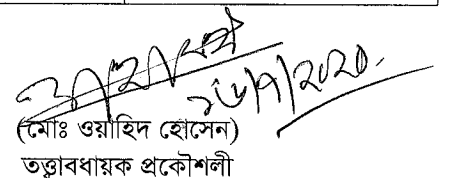 ১৬/৭/২০২০
(মোঃ ওয়াহিদ হোসেন)
তত্ত্বাবধায়ক প্রকৌশলী